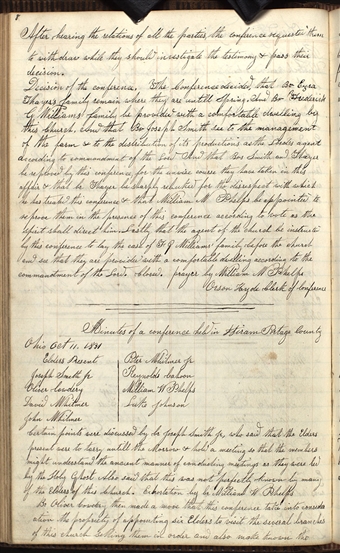 8
After hearing the relations of all the parties, the conference requested them
to withdraw while they should investigate the testimony & pass their
decision.
Decision of the conference, The Conference decided that Br. Ezra
Thayers family remain where they are untill Spring. And Br. Frederick
G Williams family be provided with a comfortable dwelling by
this Church. And that Br Joseph Smith see to the management
of the farm & to the distribution of its productions as the Lords agent
according to commandment of the Lord And that Brs Smith and Thayer
be reproved by this conference for the unwise course they have taken in this
affair & that Br Thayer be sharply rebuked for the disrespect with which
he has treated this conference & that William W. Phelps be appointed to
reprove them in the presence of this conference according to vote as the
spirit shall direct him. Lastly that the agent of the church be instructed
by this conference to lay the case of F. G Williams family before the church
and see that they are provided with a comfortable dwelling according to the
commandment of the Lord. Closed. prayer by William W Phelps
Orson Hyde Clerk of Conference
Minutes of a conference held in Hiram Portage County
Ohio Oct 11. 1831
Elders Present Peter Whitmer jr
Joseph Smith jr Reynolds Cahoon
Oliver Cowdery William W Phelps
David Whitmer Luke Johnson
John Whitmer
Certain points were discussed by br Joseph Smith jr who said that the Elders
present were to tarry untill the Morrow & hold a meeting so that the members
might understand the ancient manner of conducting meetings as they were led
by the Holy Ghost. Also said that this was not perfectly known by many
of the Elders of this Church. Exhortation by br William W Phelps
Br Oliver Cowdery then made a move that this conference take into consider
ation the propriety of appointing six Elders to visit the several branches
of this church setting them in order and also make known the